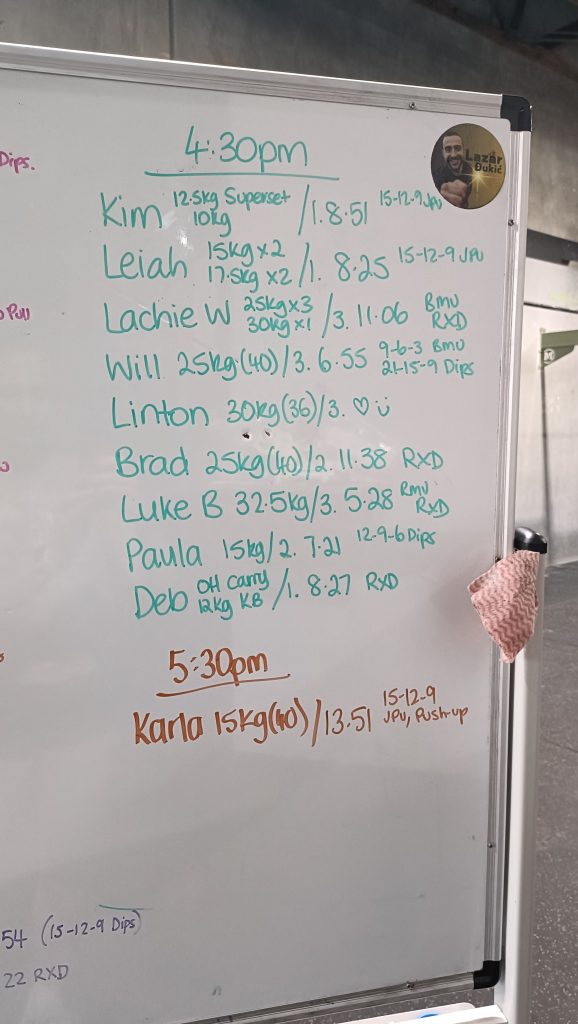 Dips.
4:30pm
Lazar
Đukić
Kim 12.5kg Superset 10kg /1. 8.51 15-12-9 JPU
Leiah 15kg x2 17.5kg x2 /1. 8.25 15-12-9 JPU
Lachie W 25kg x3 30kg x1 /3. 11.06 BMU RXD
Will 25kg(40)/3. 6.55 9-6-3 BMU 21-15-9 Dips
Linton 30kg(36)/3. ♡
Brad 25kg(40)/2. 11.38 RXD
Luke B 32.5kg/3. 5.28 RMU RXD
Paula 15kg/2. 7.21 12-9-6 Dips
Deb OH Carry 12kg KB /1. 8.27 RXD
5:30pm
Karla 15kg(40)/13.51 15-12-9 JPU, Push-up
54 (15-12-9 Dips)
22 RXD